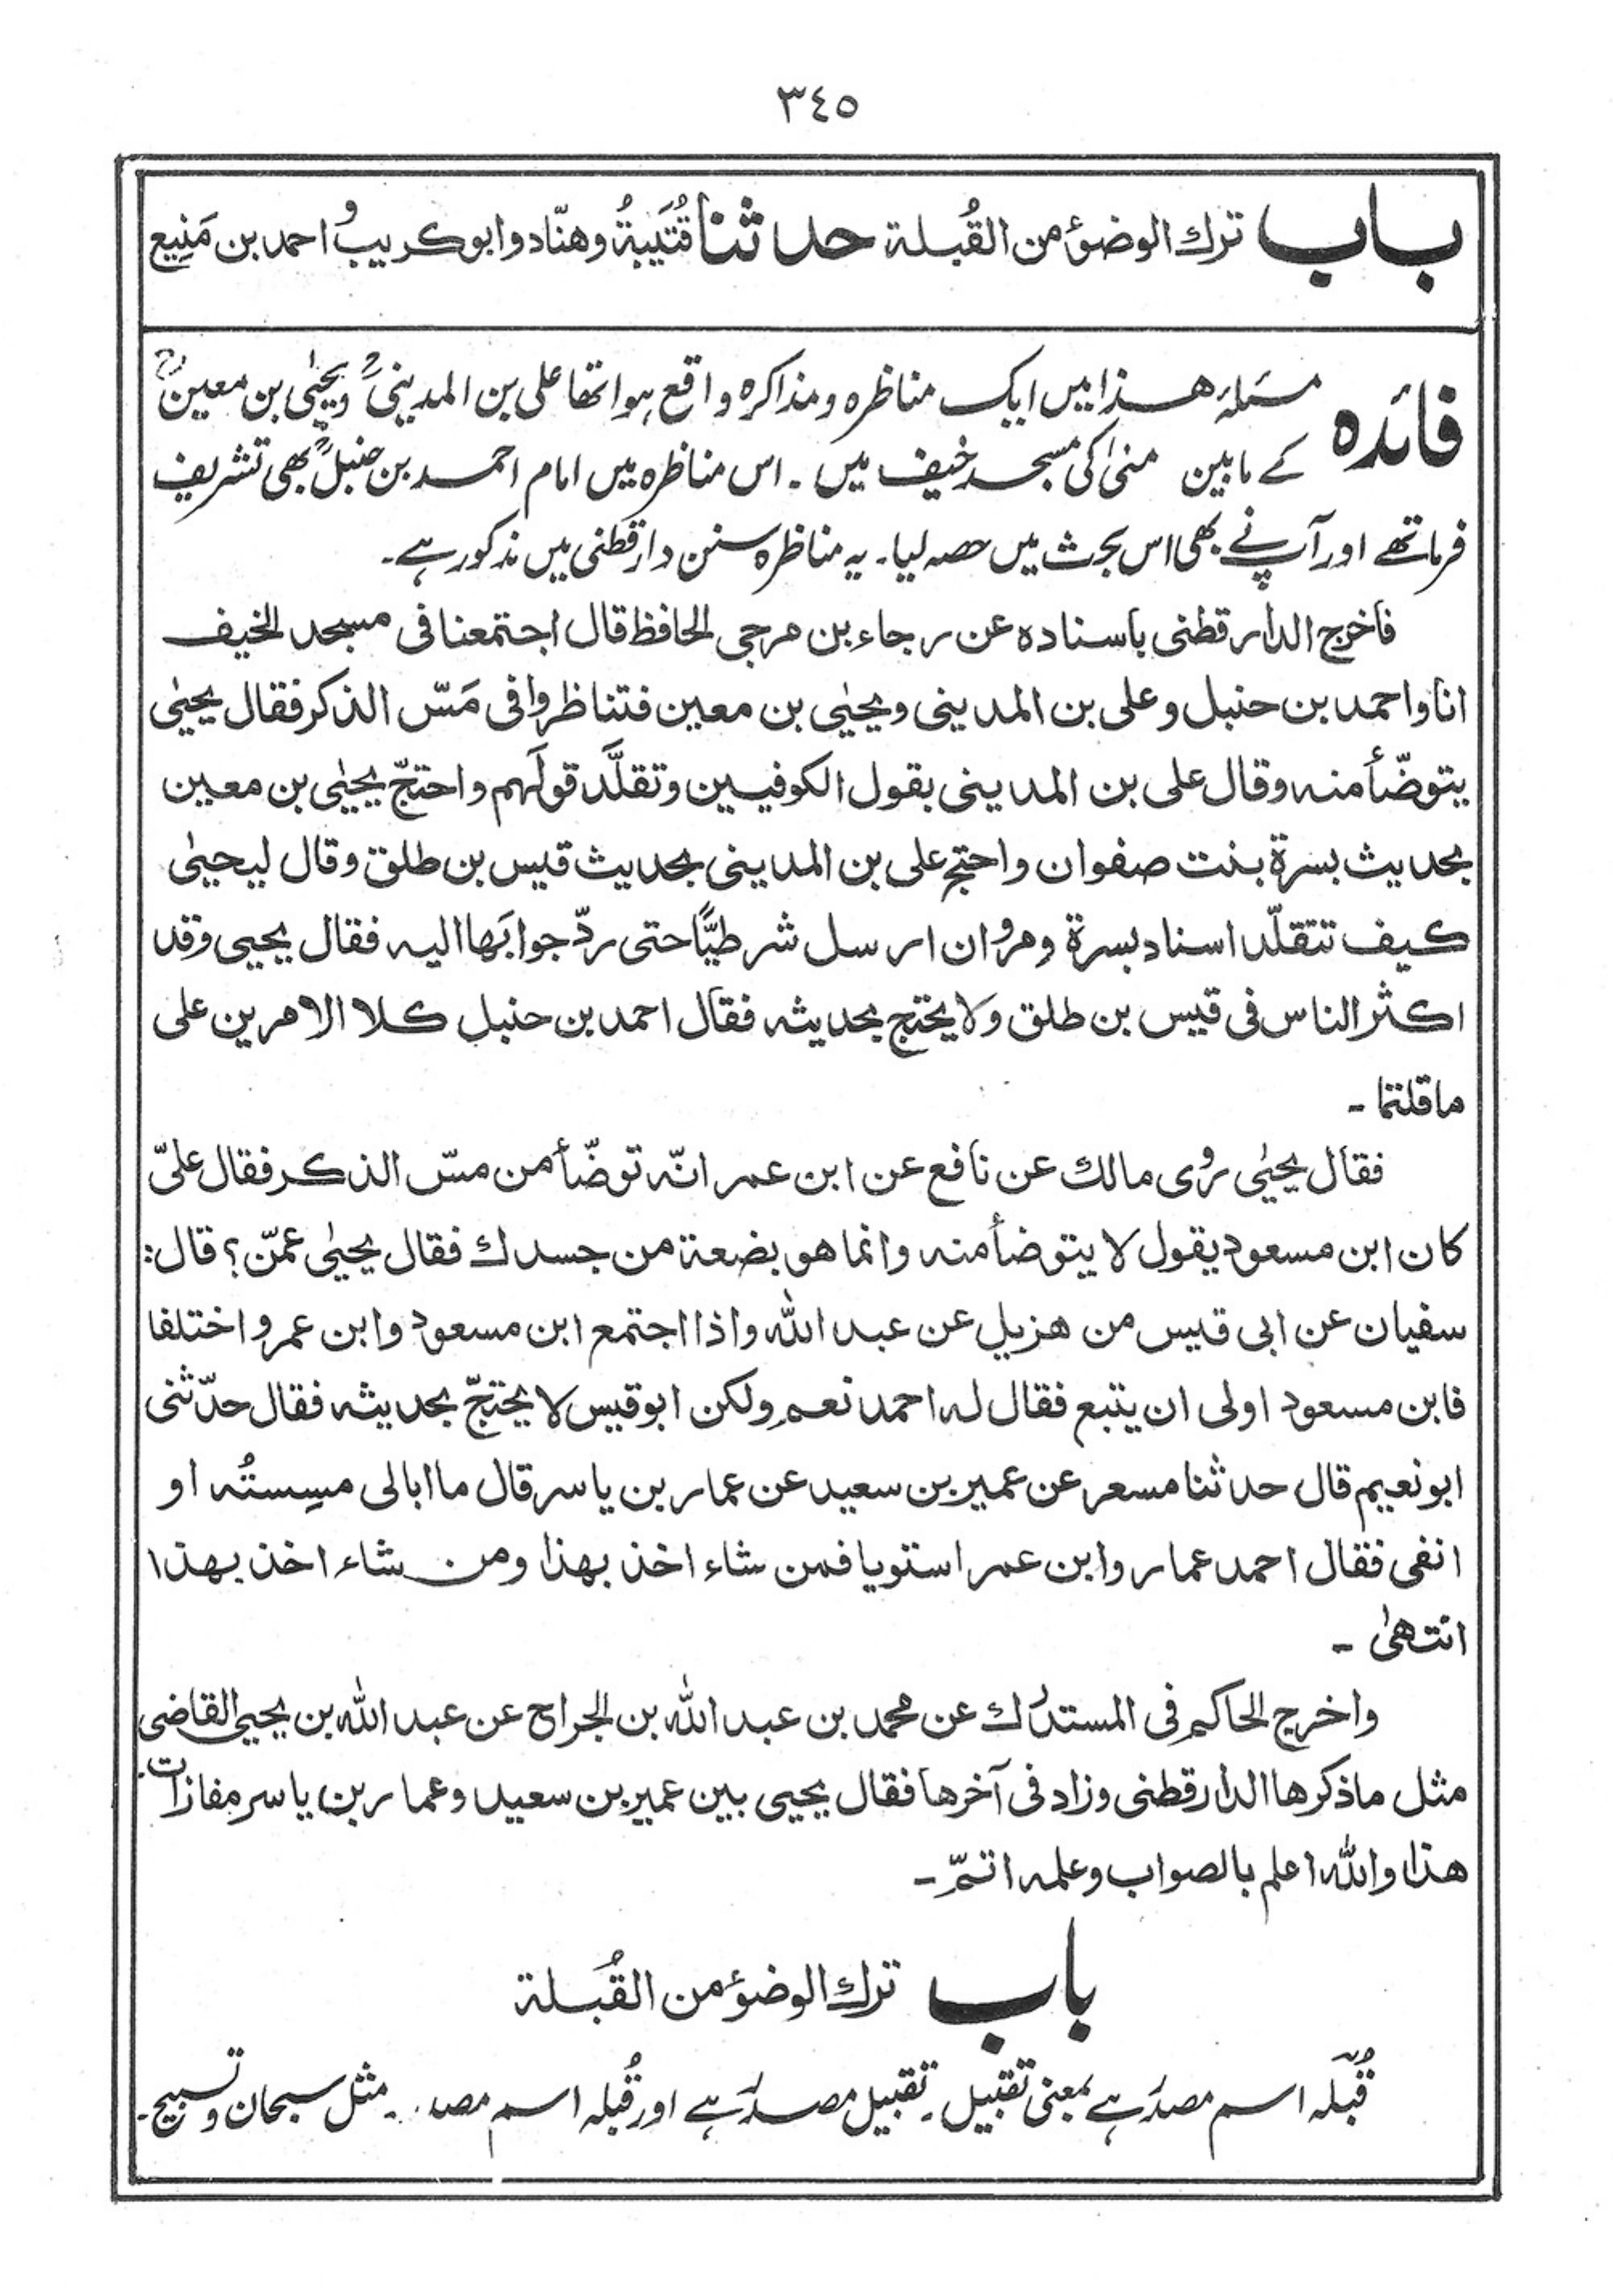 ٣٤٥
باب ترك الوضوٴ من القُبلة حدثنا قُتَيبةُ وهنّاد وابوكريبُ و احمد بن مَنِيع
فائدہ مسئلۂ ھذا میں ایک مناظرہ و مذاکرہ واقع ہوا تھا علی بن المدینیؒ و یحیٰی بن معینؒ
کے مابین منیٰ کی مسجد خیف میں ۔ اس مناظرہ میں امام احمد بن حنبلؒ بھی تشریف
فرما تھے اور آپ نے بھی اس بحث میں حصہ لیا۔ یہ مناظرہ سنن دارقطنی میں مذکور ہے۔
فأخرج الدارقطنی باسناده عن رجاء بن مرجی الحافظ قال اجتمعنا فی مسجد الخیف
انا واحمد بن حنبل وعلی بن المدینی ویحیٰی بن معین فتناظروا فی مَسّ الذكر فقال یحیٰی
یتوضّأ منه وقال علی بن المدینی بقول الكوفیین وتقلَّد قولَهم واحتجّ یحیٰی بن معین
بحدیث بسرة بنت صفوان واحتج علی بن المدینی بحدیث قیس بن طلق وقال لیحیٰی
كیف تتقلّد اسناد بسرة ومروان ارسل شرطیًّا حتی ردّ جوابَها الیه فقال یحیی وقد
اكثر الناس فی قیس بن طلق ولا یحتج بحدیثه فقال احمد بن حنبل كلا الامرین علی
ما قلتما ۔
فقال یحیٰی روی مالك عن نافع عن ابن عمر انّه توضّأ من مسّ الذكر فقال علیّ
كان ابن مسعود یقول لا یتوضأ منه وانما هو بضعة من جسدك فقال یحیٰی عمّن؟ قال:
سفیان عن ابی قیس من هزیل عن عبد الله واذا اجتمع ابن مسعود وابن عمر واختلفا
فابن مسعود اولی ان یتبع فقال له احمد نعم ولكن ابوقیس لا یحتجّ بحدیثه فقال حدّثنی
ابونعیم قال حدثنا مسعر عن عمیر بن سعید عن عمار بن یاسر قال ما ابالی مسِستُه او
انفی فقال احمد عمار وابن عمر استویا فمن شاء اخذ بهذا ومن شاء اخذ بهذا
انتهیٰ ۔
واخرج الحاكم فی المستدرك عن محمد بن عبد الله بن الجراح عن عبد الله بن یحیی القاضی
مثل ما ذكرها الدارقطنی وزاد فی آخرها فقال یحیی بین عمیر بن سعید وعمار بن یاسر مفازات.
هذا والله اعلم بالصواب وعلمه اتمّ ۔
باب ترك الوضوٴ من القُبلة
قُبلہ اسم مصدر ہے بمعنی تقبیل۔ تقبیل مصدر ہے اور قُبلہ اسم ۔ مثل سبحان و تسبیح۔